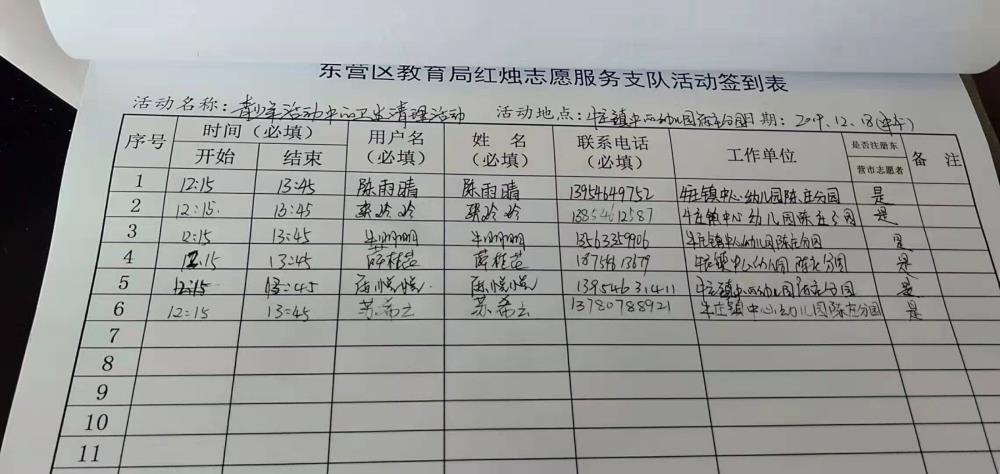 东营区教育局红烛志愿服务支队活动签到表
活动名称：青少年活动中心卫生清理活动 活动地点：牛庄镇中心幼儿园陈庄分园 日期：2019.12.18(中午)
序号 时间（必填） 用户名（必填） 姓 名（必填） 联系电话（必填） 工作单位 是否注册东营市志愿者 备 注
开始 结束
1 12:15 13:45 陈雨晴 陈雨晴 13954649752 牛庄镇中心幼儿园陈庄分园 是
2 12:15 13:45 张玲玲 张玲玲 13854612587 牛庄镇中心幼儿园陈庄分园 是
3 12:15 13:45 牛明明 牛明明 13563359906 牛庄镇中心幼儿园陈庄分园 是
4 12:15 13:45 牛庄镇中心幼儿园陈庄分园 是
5 12:15 13:45 悦悦 悦悦 13954631411 牛庄镇中心幼儿园陈庄分园 是
6 12:15 13:45 苏希云 苏希云 13780788921 牛庄镇中心幼儿园陈庄分园 是
7
8
9
10
11